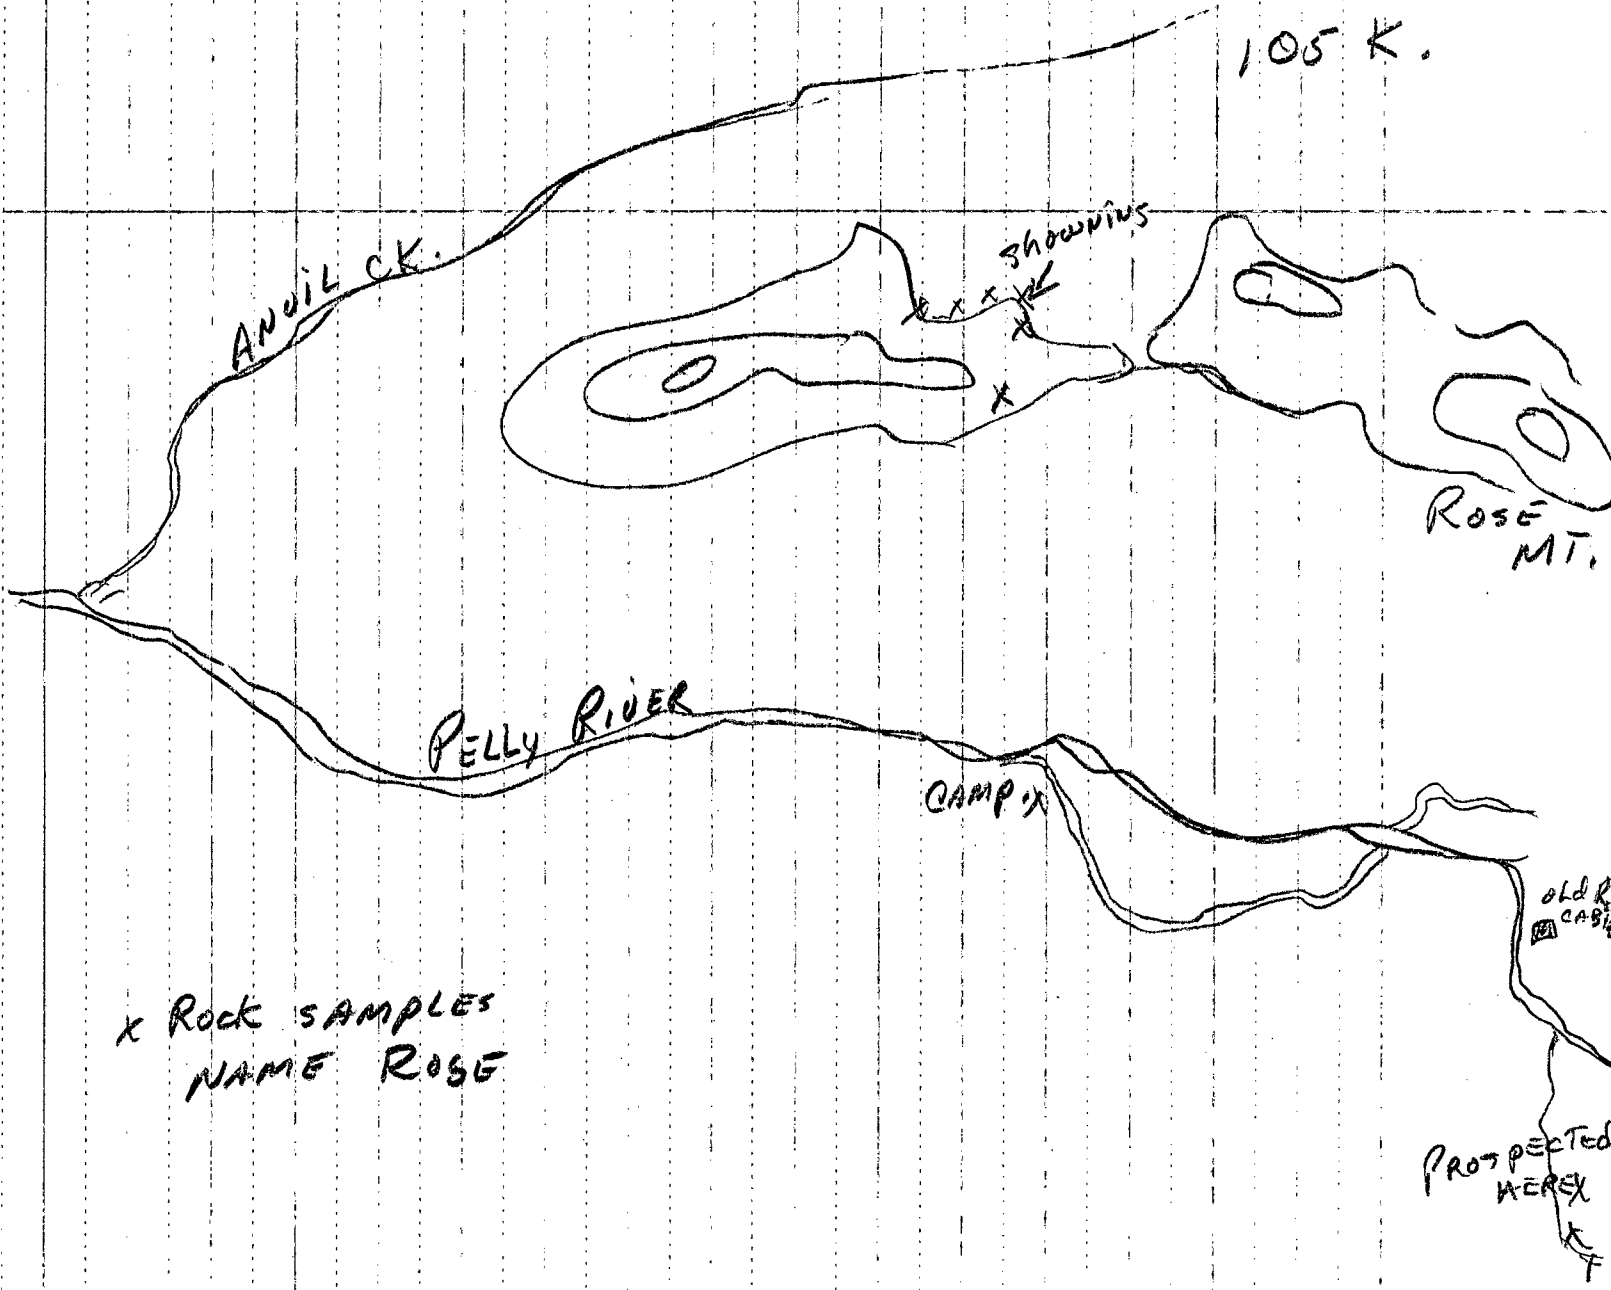 105 K.
ANVIL CK.
SHOWNING
ROSE
MT.
PELLY RIVER
CAMP.X
OLD
X ROCK SAMPLES
NAME ROSE
PROSPECTED
HERE X